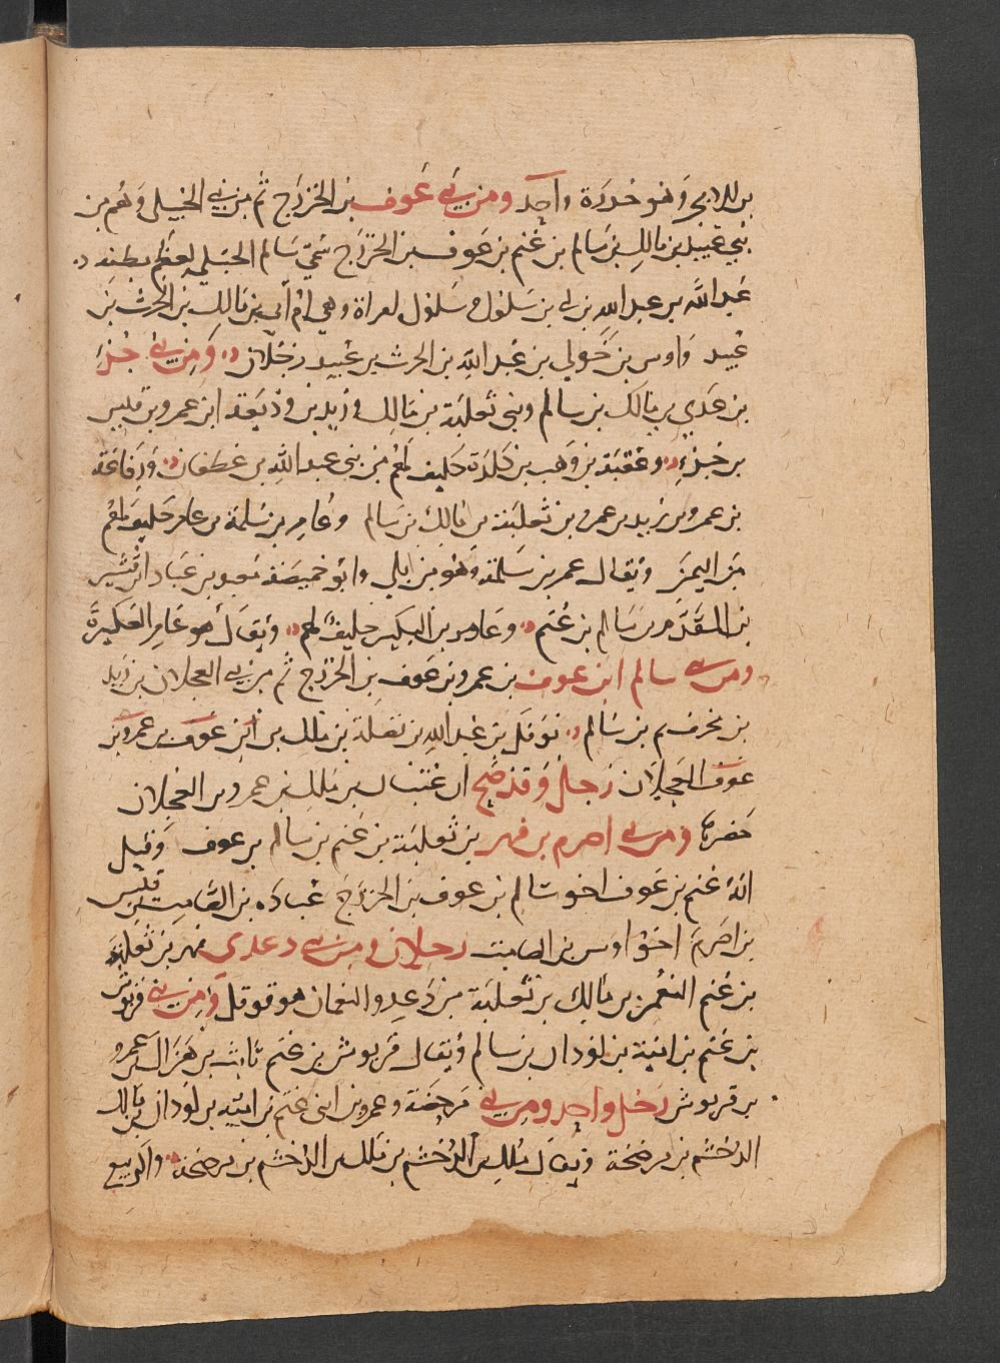 بن الابجر وهو خدرة واحد ومن بني عوف بن الخزرج ثم من بني الحبلى وهم من
بني عبيد بن مالك بن سالم بن غنم بن عوف بن الخزرج سمي سالم الحبلى لعظم بطنه
عبد الله بن عبد الله بن ابي بن سلول وسلول امراة وهي ام ابي بن مالك بن الحرث بن
عبيد واوس بن خولي بن عبد الله بن الحرث بن عبيد رجلان ومن بني جزء
بن عدي بن مالك بن سالم وبني ثعلبة بن مالك زيد بن وديعة ابن عمرو بن قيس
بن جزء وعقبة بن وهب بن كلدة حليف لهم من بني عبد الله بن غطفان ورفاعة
بن عمرو بن زيد بن عمرو بن ثعلبة بن مالك بن سالم وعامر بن سلمة بن عامر حليف لهم
من اليمن ويقال عمر بن سلمة وهو من بلي وابو خميصة معبد بن عباد بن قشير
بن المقدم بن سالم بن غنم وعامر بن البكير حليف لهم ويقال هو عامر العكير
ومن بني سالم ابن عوف بن عمرو بن عوف بن الخزرج ثم من بني العجلان بن زيد
بن غنم بن سالم نوفل بن عبد الله بن نضلة بن ملك بن عوف بن عمرو بن
عوف العجلان رجل وقد صح ان عتبان بن ملك بن عمرو بن العجلان
حضرها ومن بني اصرم بن فهر بن ثعلبة بن غنم بن سالم بن عوف وقيل
انه غنم بن عوف اخو سالم بن عوف بن الخزرج عبادة بن الصامت بن قيس
بن اصرم اخو اوس بن الصامت رجلان ومن بني دعد بن فهر بن ثعلبة
بن غنم النعمن بن مالك بن ثعلبة بن دعد والنعمان هو قوقل ومن بني قريوش
بن غنم بن امية بن لوذان بن سالم ويقال قريوش بن غنم ثابت بن هزال بن عمرو
بن قريوش رجل واحد ومن بني مرضخة وعمرو بن غنم بن امية بن لوذان مالك بن
الدخشم بن مرضخة ويقال ملك بن الدخشم بن ملك بن الدخشم بن مرضخة والربيع